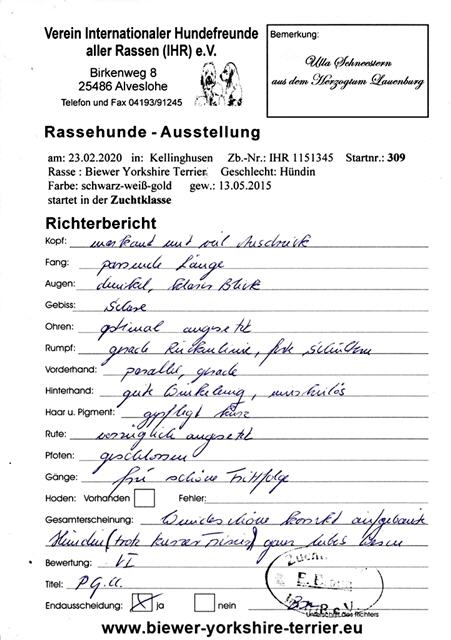 Verein Internationaler Hundefreunde
aller Rassen (IHR) e.V.
Birkenweg 8
25486 Alveslohe
Telefon und Fax 04193/91245
Bemerkung:
Ulla Schneestern
aus dem Herzogtum Lauenburg
Rassehunde - Ausstellung
am: 23.02.2020 in: Kellinghusen Zb.-Nr.: IHR 1151345 Startnr.: 309
Rasse : Biewer Yorkshire Terrier Geschlecht: Hündin
Farbe: schwarz-weiß-gold gew.: 13.05.2015
startet in der Zuchtklasse
Richterbericht
Kopf: markant mit viel Ausdruck
Fang: passende Länge
Augen: dunkel, klarer Blick
Gebiss: Schere
Ohren: optimal angesetzt
Rumpf: gerade Rückenlinie, Schultern
Vorderhand: parallel, gerade
Hinterhand: gute Winkelung, muskulös
Haar u. Pigment: gepflegt kurz
Rute: vorzüglich angesetzt
Pfoten: geschlossen
Gänge: frei schöne Trittfolge
Hoden: Vorhanden Fehler:
Gesamterscheinung: Wunderschöne korrekt aufgebaute
Hündin (trotz kurzer Frisur) ganz liebes Wesen
Bewertung: V1
Titel:
Endausscheidung: X ja nein
Unterschrift des Richters
www.biewer-yorkshire-terrier.eu